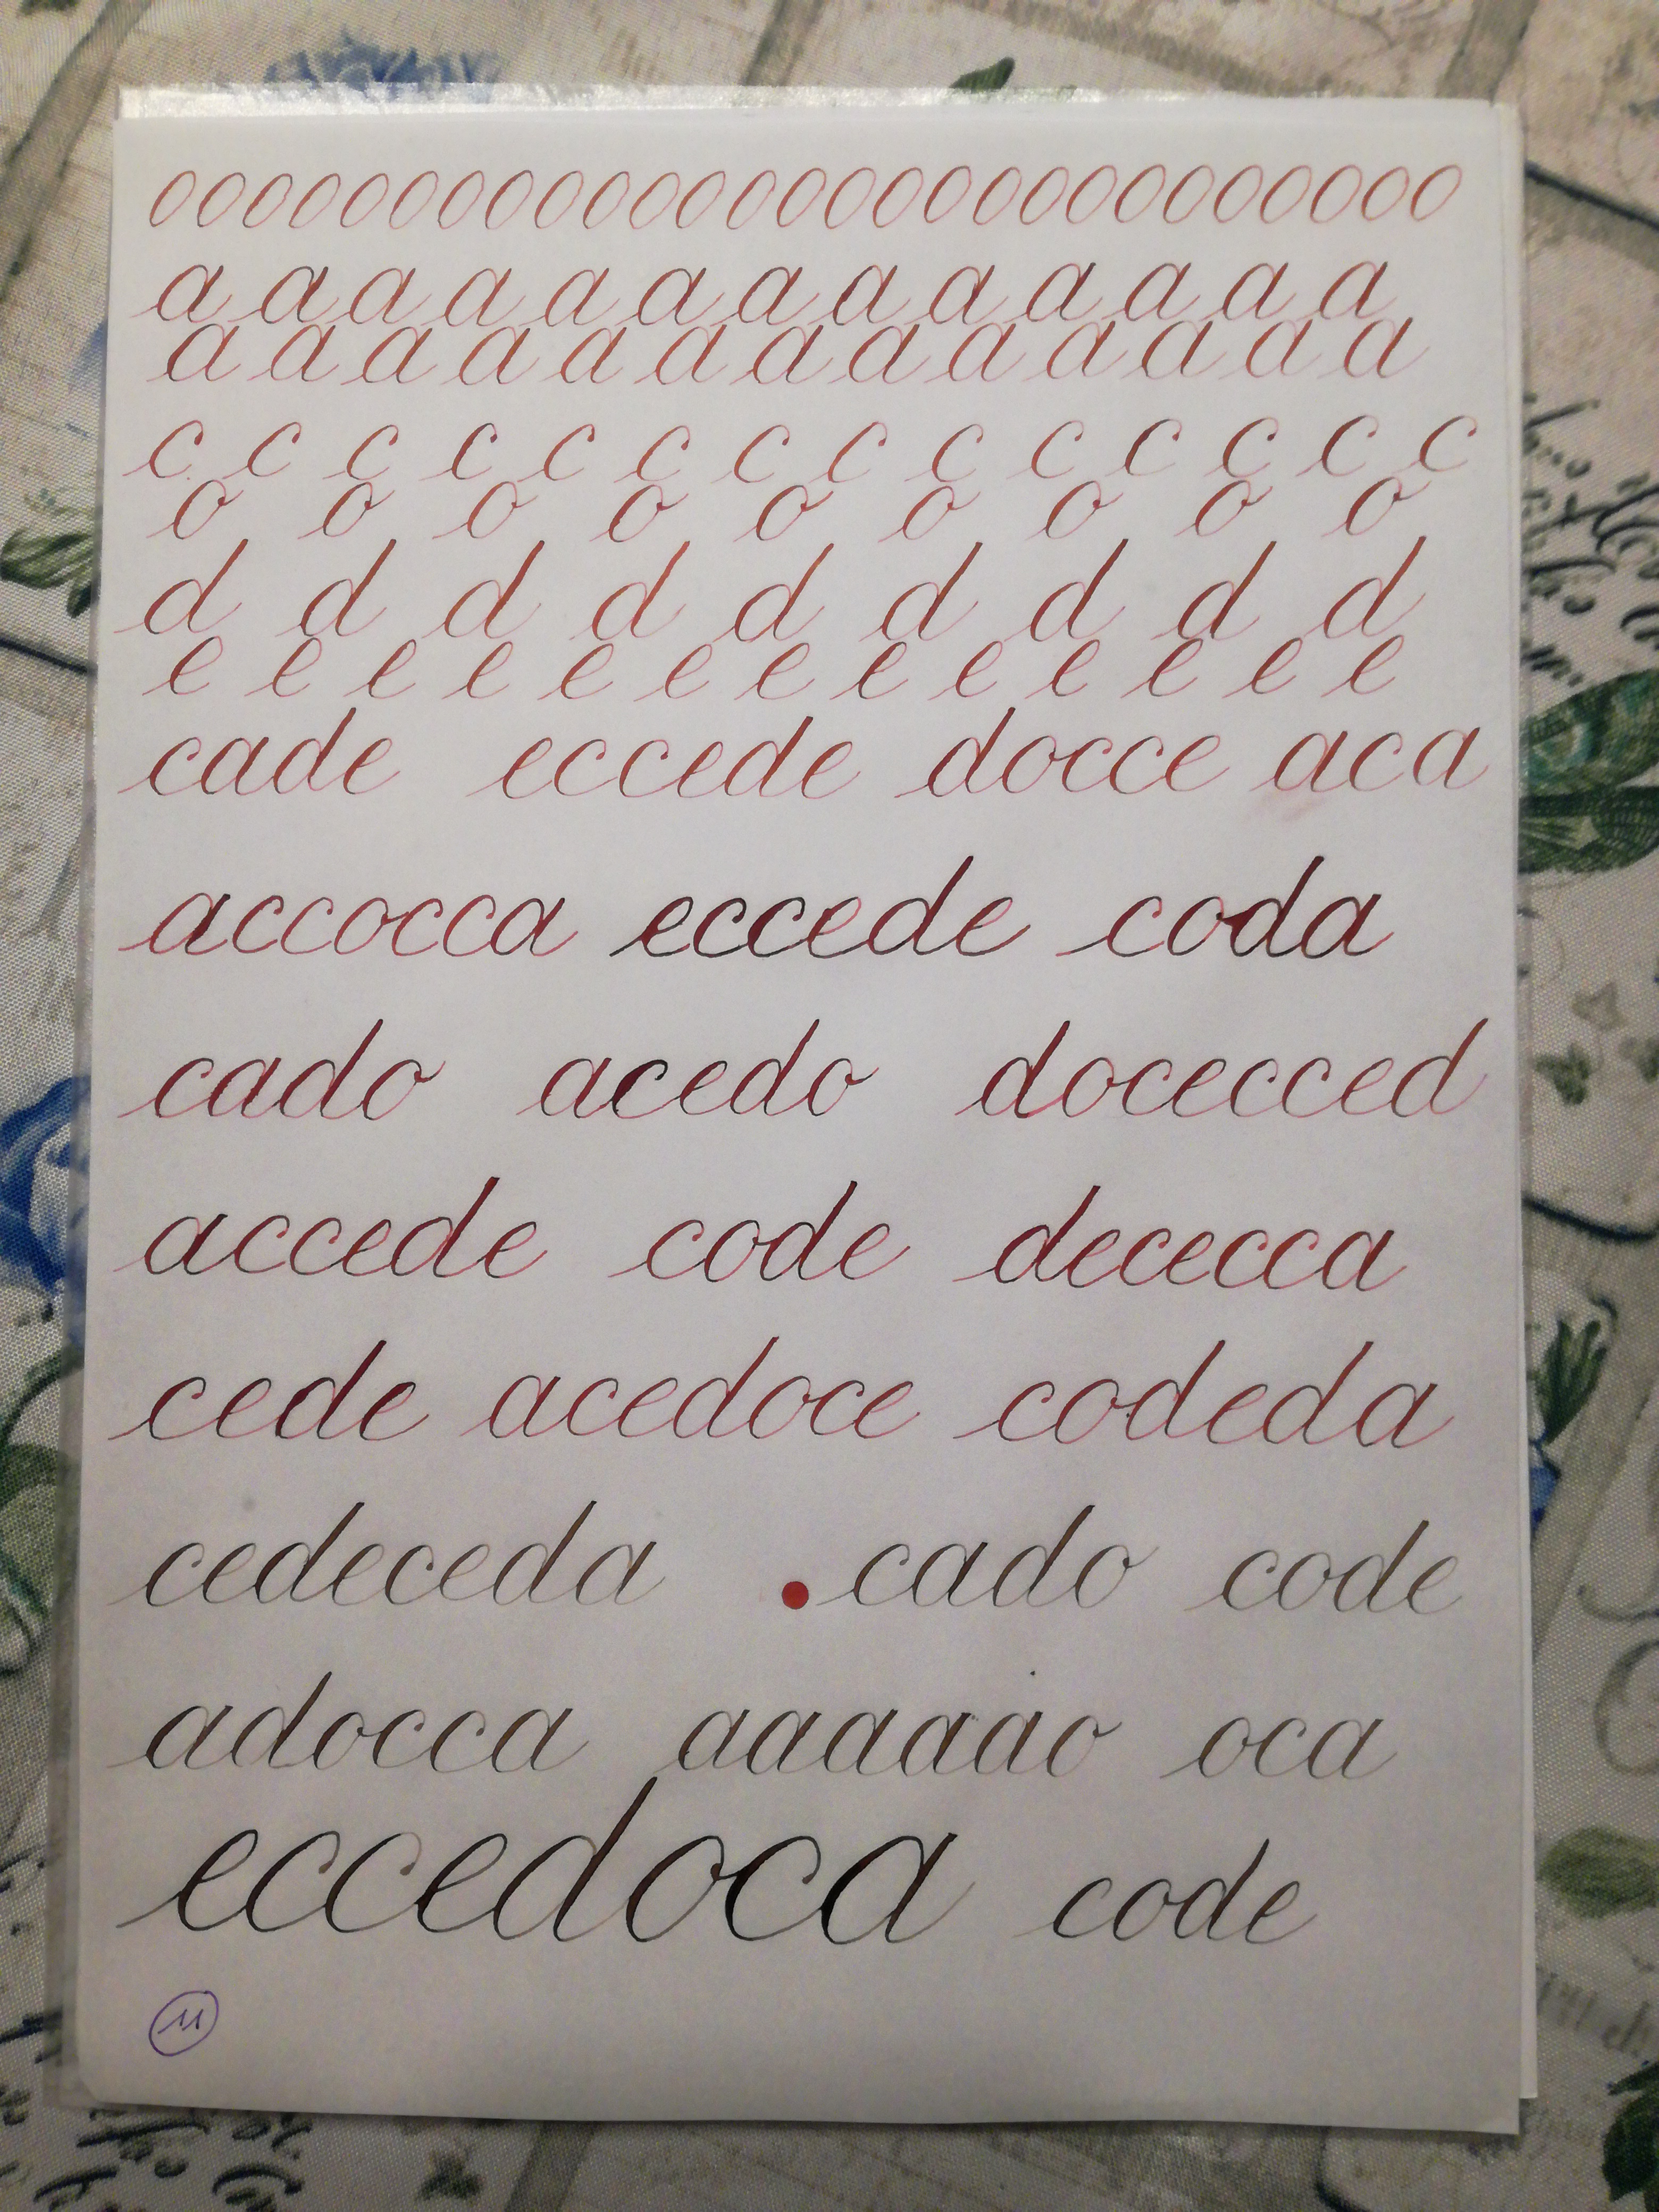 oooooooooooooooooooooooooooo
a a a a a a a a a a a a a
a a a a a a a a a a a a a
c c c c c c c c c c c c c c
o o o o o o o o o
d d d d d d d d d
e e e e e e e e e e e e e
cade eccede docce aca
accocca eccede coda
cado acedo docecced
accede code dececca
cede acedoce codeda
cedeceda cado code
adocca aaaaaao oca
eccedoca code
11